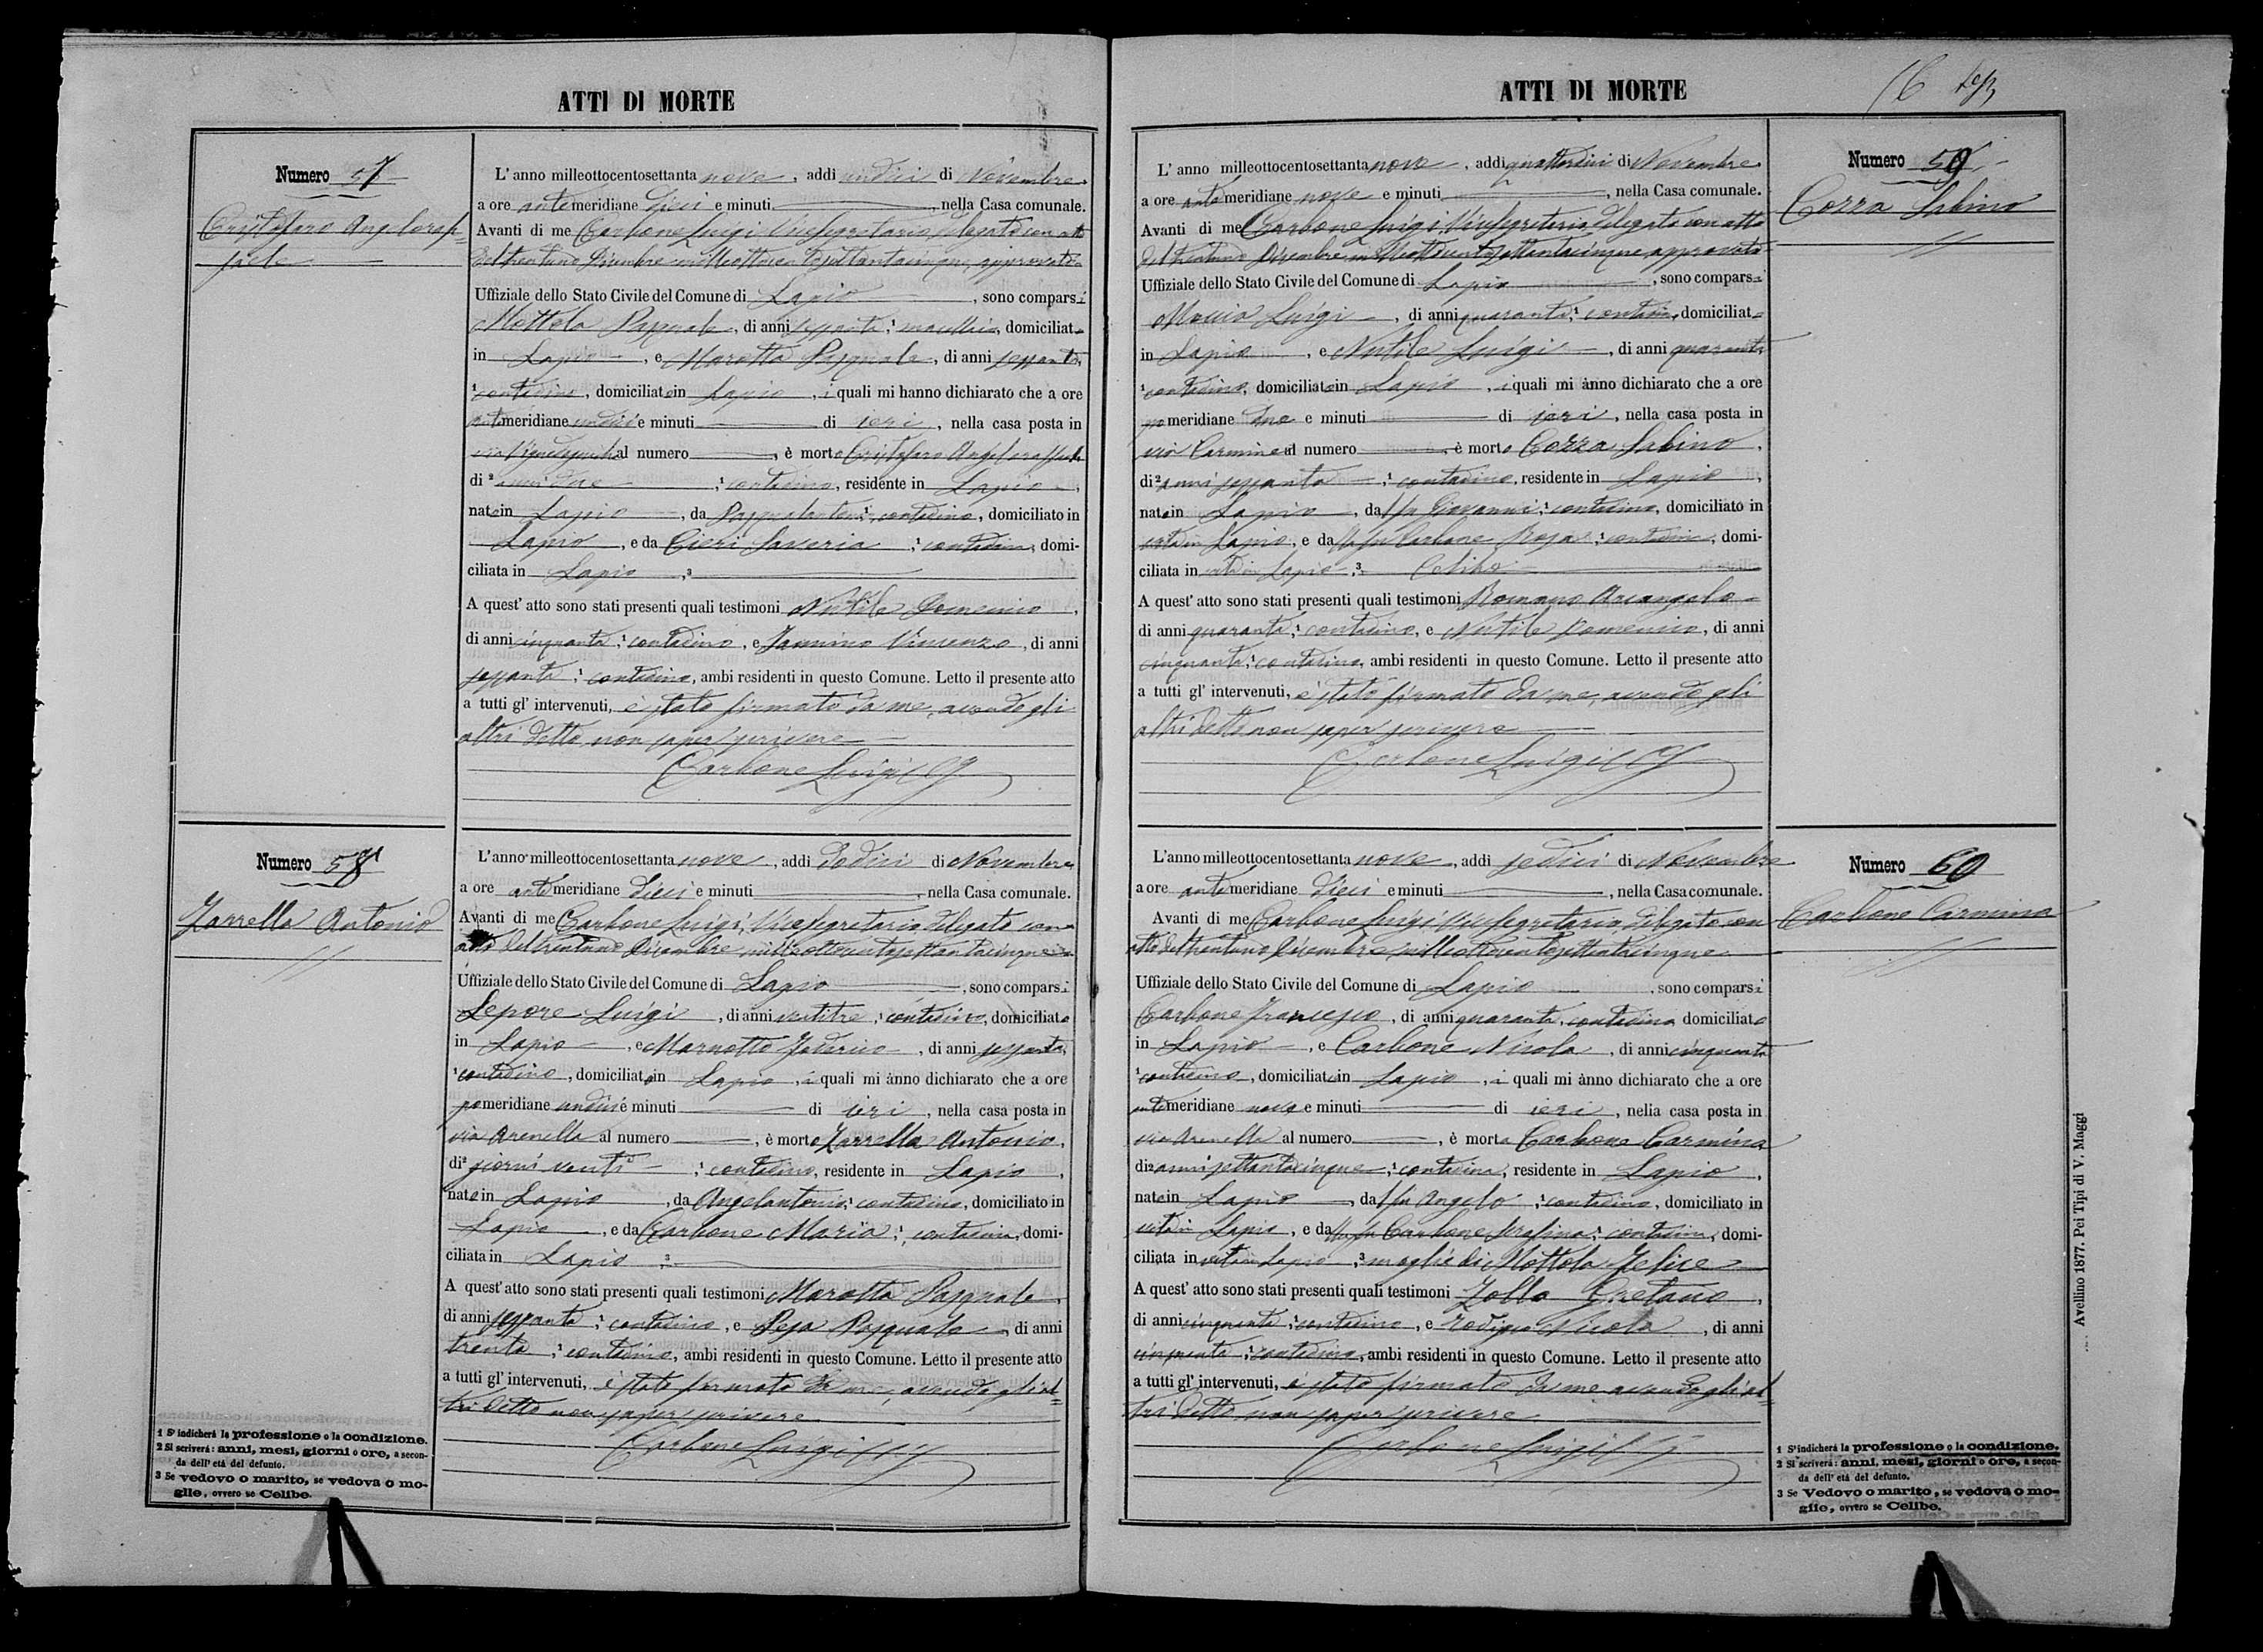 ATTI DI MORTE
Numero 57
Cristofaro Angeloraf=
faele
L'anno milleottocentosettanta nove, addi undici di Novembre
a ore antemeridiane dieci e minuti, nella Casa comunale.
Avanti di me Carbone Luigi Vicesegretario, delegato con atto
del trentuno Dicembre milleottocentosettantacinque, approvato
Uffiziale dello Stato Civile del Comune di Lapio, sono comparsi
Mottola Pasquale, di anni sessanta, macellaio, domiciliato
in Lapio, e Marotta Pasquale, di anni sessanta,
contadino, domiciliato in Lapio, i quali mi hanno dichiarato che a ore
antemeridiane undici e minuti di ieri, nella casa posta in
via al numero, è morto Cristofaro Angeloraffaele
di anni due, contadino, residente in Lapio,
nato in Lapio, da Pasqualantonio, contadino, domiciliato in
Lapio, e da Cieri Saveria, contadina, domi-
ciliata in Lapio
A quest'atto sono stati presenti quali testimoni Nutile Domenico,
di anni cinquanta, contadino, e Iannino Vincenzo, di anni
sessanta, contadino, ambi residenti in questo Comune. Letto il presente atto
a tutti gl'intervenuti, è stato firmato da me, avendo gli
altri detto non saper scrivere
Carbone Luigi
Numero 58
Zarrella Antonio
L'anno milleottocentosettanta nove, addi dodici di Novembre
a ore antemeridiane dieci e minuti, nella Casa comunale.
Avanti di me Carbone Luigi, Vicesegretario delegato con
atto del trentuno Dicembre milleottocentosettantacinque
Uffiziale dello Stato Civile del Comune di Lapio, sono comparsi
Lepore Luigi, di anni ventitre, contadino, domiciliato
in Lapio, e Marnotto Federico, di anni sessanta,
contadino, domiciliato in Lapio, i quali mi ànno dichiarato che a ore
pomeridiane undici e minuti di ieri, nella casa posta in
via Arenella al numero, è morto Zarrella Antonio,
di giorni venti, contadino, residente in Lapio,
nato in Lapio, da Angelantonio, contadino, domiciliato in
Lapio, e da Carbone Maria, contadina, domi-
ciliata in Lapio
A quest'atto sono stati presenti quali testimoni Marotta Pasquale,
di anni sessanta, contadino, e Pasquale, di anni
trenta, contadino, ambi residenti in questo Comune. Letto il presente atto
a tutti gl'intervenuti, è stato firmato da me, avendo gli al=
tri detto non saper scrivere
Carbone Luigi
1 S'indicherà la professione o la condizione.
2 Si scriverà: anni, mesi, giorni o ore, a secon-
da dell'età del defunto.
3 Se vedovo o marito, se vedova o mo-
glie, ovvero se Celibe.
ATTI DI MORTE
16
Numero 59
Cozza Sabino
L'anno milleottocentosettanta nove, addi quattordici di Novembre
a ore antemeridiane nove e minuti, nella Casa comunale.
Avanti di me Carbone Luigi, Vicesegretario, delegato con atto
del trentuno Dicembre milleottocentosettantacinque approvato
Uffiziale dello Stato Civile del Comune di Lapio, sono comparsi
Luigi, di anni quaranta, contadino, domiciliato
in Lapio, e Nutile Luigi, di anni quaranta
contadino, domiciliato in Lapio, i quali mi ànno dichiarato che a ore
pomeridiane due e minuti di ieri, nella casa posta in
via Carmine al numero, è morto Cozza Sabino,
di anni sessanta, contadino, residente in Lapio,
nato in Lapio, da fu Giovanni, contadino, domiciliato in
vita in Lapio, e da fu Carbone Rosa, contadina, domi-
ciliata in vita in Lapio, Celibe
A quest'atto sono stati presenti quali testimoni Romano Arcangelo
di anni quaranta, contadino, e Nutile Domenico, di anni
cinquanta, contadino, ambi residenti in questo Comune. Letto il presente atto
a tutti gl'intervenuti, è stato firmato da me, avendo gli
altri detto non saper scrivere
Carbone Luigi
Numero 60
Carbone Carmina
L'anno milleottocentosettanta nove, addi sedici di Novembre
a ore antemeridiane dieci e minuti, nella Casa comunale.
Avanti di me Carbone Luigi Vicesegretario, delegato con
atto del trentuno Dicembre milleottocentosettantacinque
Uffiziale dello Stato Civile del Comune di Lapio, sono comparsi
Carbone Francesco, di anni quaranta, contadino domiciliato
in Lapio, e Carbone Nicola, di anni cinquanta
contadino, domiciliato in Lapio, i quali mi ànno dichiarato che a ore
antemeridiane nove e minuti di ieri, nella casa posta in
via Arenella al numero, è morta Carbone Carmina
di anni settantacinque, contadina, residente in Lapio,
nata in Lapio, da fu Angelo, contadino, domiciliato in
vita in Lapio, e da fu Carbone Serafina, contadina, domi-
ciliata in vita in Lapio, moglie di Mottola Felice
A quest'atto sono stati presenti quali testimoni Zollo Gaetano,
di anni cinquanta, contadino, e Nicola, di anni
cinquanta, contadino, ambi residenti in questo Comune. Letto il presente atto
a tutti gl'intervenuti, è stato firmato da me avendo gli al=
tri detto non saper scrivere
Carbone Luigi
1 S'indicherà la professione o la condizione.
2 Si scriverà: anni, mesi, giorni o ore, a secon-
da dell'età del defunto.
3 Se Vedovo o marito, se vedova o mo-
glie, ovvero se Celibe.
Avellino 1877. Pei Tipi di V. Maggi